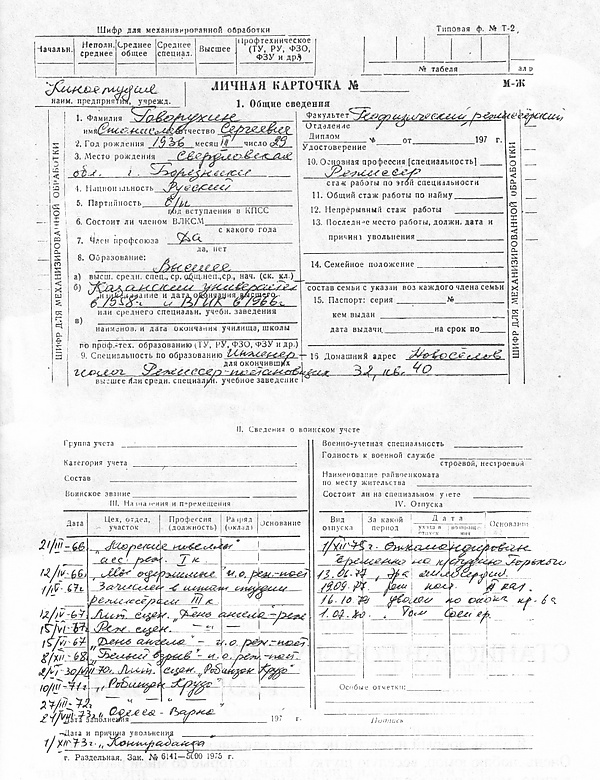 Шифр для механизированной обработки
Типовая ф. № Т-2
Начальн. Неполн. среднее Среднее общее Среднее специал. Высшее Профтехническое (ТУ, РУ, ФЗО, ФЗУ и др.)
№ табеля
Киностудия
наим. предприятия, учрежд.
ЛИЧНАЯ КАРТОЧКА №
М-Ж
1. Общие сведения
ШИФР ДЛЯ МЕХАНИЗИРОВАННОЙ ОБРАБОТКИ
1. Фамилия Говорухин
имя Станислав отчество Сергеевич
2. Год рождения 1936 месяц III число 29
3. Место рождения Свердловская
обл. г. Березники
4. Национальность Русский
5. Партийность б/п
год вступления в КПСС
6. Состоит ли членом ВЛКСМ
с какого года
7. Член профсоюза Да
да, нет
8. Образование:
Высшее
а) высш. средн. спец., ср. общ. неп. ср., нач. (ск. кл.)
б) Казанский университет
наименование и дата окончания высшего
в 1958г. и ВГИК в 1966г
или среднего специальн. учебн. заведения
в)
наименов. и дата окончания училища, школы
по проф.-тех. образованию (ТУ, РУ, ФЗО, ФЗУ и др.)
9. Специальность по образованию Инженер-
для окончивших
геолог Режиссер-постановщик
высшее или средн. специальн. учебное заведение
Факультет Геофизический, режиссерский
Отделение
Диплом № от 197 г.
Удостоверение
10. Основная профессия [специальность]
Режиссер
стаж работы по этой специальности
11. Общий стаж работы по найму
12. Непрерывный стаж работы
13. Последнее место работы, должн. дата и
причина увольнения
14. Семейное положение
состав семьи с указан воз каждого члена семьи
15. Паспорт: серия №
кем выдан
дата выдачи на срок по
16 Домашний адрес Новоселов
32, кв. 40
ШИФР ДЛЯ МЕХАНИЗИРОВАННОЙ ОБРАБОТКИ
II. Сведения о воинском учете
Группа учета
Категория учета
Состав
Воинское звание
Военно-учетная специальность
Годность к военной службе
строевой, нестроевой
Наименование райвоенкомата
по месту жительства
Состоит ли на специальном учете
III. Назначения и перемещения
Дата Цех, отдел, участок Профессия (должность) Разряд (оклад) Основание
21/III-66 „Морские новеллы"
асс. реж. I к
12/IV-66г „Мы одержимые" и.о. реж-пост
1/IV-67г Зачислен в штат студии
режиссером III к
12/IV-67г Лит. сцен. „День ангела-реж
15/VI-67г Реж. сцен. — " —
15/VI-67 „День ангела" - и.о. реж-пост.
8/XII-68г „Белый взрыв" - и.о. реж-пост.
Лит. сцен. „Робинзон Крузо"
10/III-71г. „Робинзон Крузо"
27/III-72г — " —
„Одесса-Варна"
Дата заполнения 197 г.
Дата и причина увольнения
1/XII-73г. „Контрабанда"
г. Раздельная. Зак. № 6141—5000 1975 г.
IV. Отпуска
Вид отпуска За какой период Дата Основание
1/XII-75г. Откомандирован
временно на к/студию Горького
13.06.77
19.09.77
16.10.79
1.07.80.
Особые отметки:
Подпись